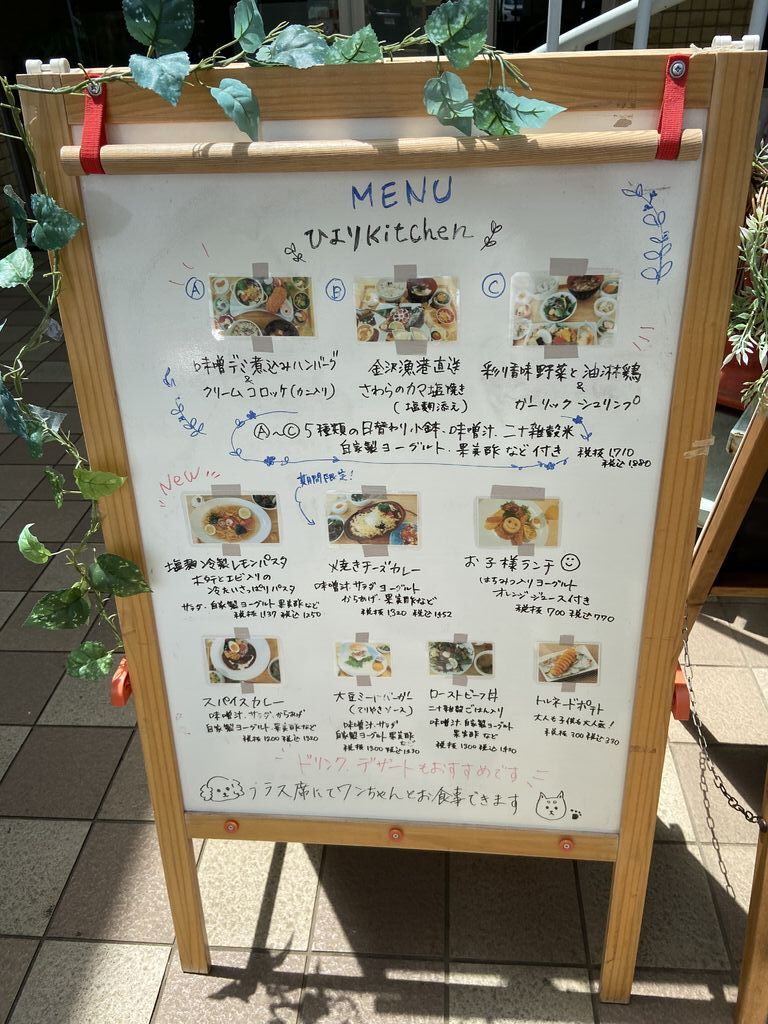 MENU
ひよりKitchen
Ⓐ
Ⓑ
Ⓒ
味噌デミ煮込みハンバーグ
&
クリームコロッケ(カニ入り)
金沢漁港直送
さわらのカマ塩焼き
(塩麹添え)
彩り香味野菜と油淋鶏
&
ガーリックシュリンプ
Ⓐ〜Ⓒ 5種類の日替わり小鉢、味噌汁、二十雑穀米
自家製ヨーグルト、果実酢など付き 税抜1710
税込1880
New
塩麹冷製レモンパスタ
ホタテとエビ入りの
冷たいさっぱりパスタ
サラダ・自家製ヨーグルト 果実酢など
税抜1137 税込1250
期間限定!
焼きチーズカレー
味噌汁 サラダ ヨーグルト
からあげ・果実酢など
税抜1320 税込1452
お子様ランチ
はちみつ入りヨーグルト
オレンジジュース付き
税抜700 税込770
スパイスカレー
味噌汁、サラダ、からあげ
自家製ヨーグルト 果実酢など
税抜1200 税込1320
大豆ミートバーガー
(てりやきソース)
味噌汁、サラダ
自家製ヨーグルト 果実酢
税抜1300 税込1430
ローストビーフ丼
二十雑穀ごはん入り
味噌汁 自家製ヨーグルト
果実酢 など
税抜1300 税込1430
トルネードポテト
大人も子供も大人気!
税抜300 税込330
ドリンク、デザートもおすすめです
テラス席にてワンちゃんとお食事できます